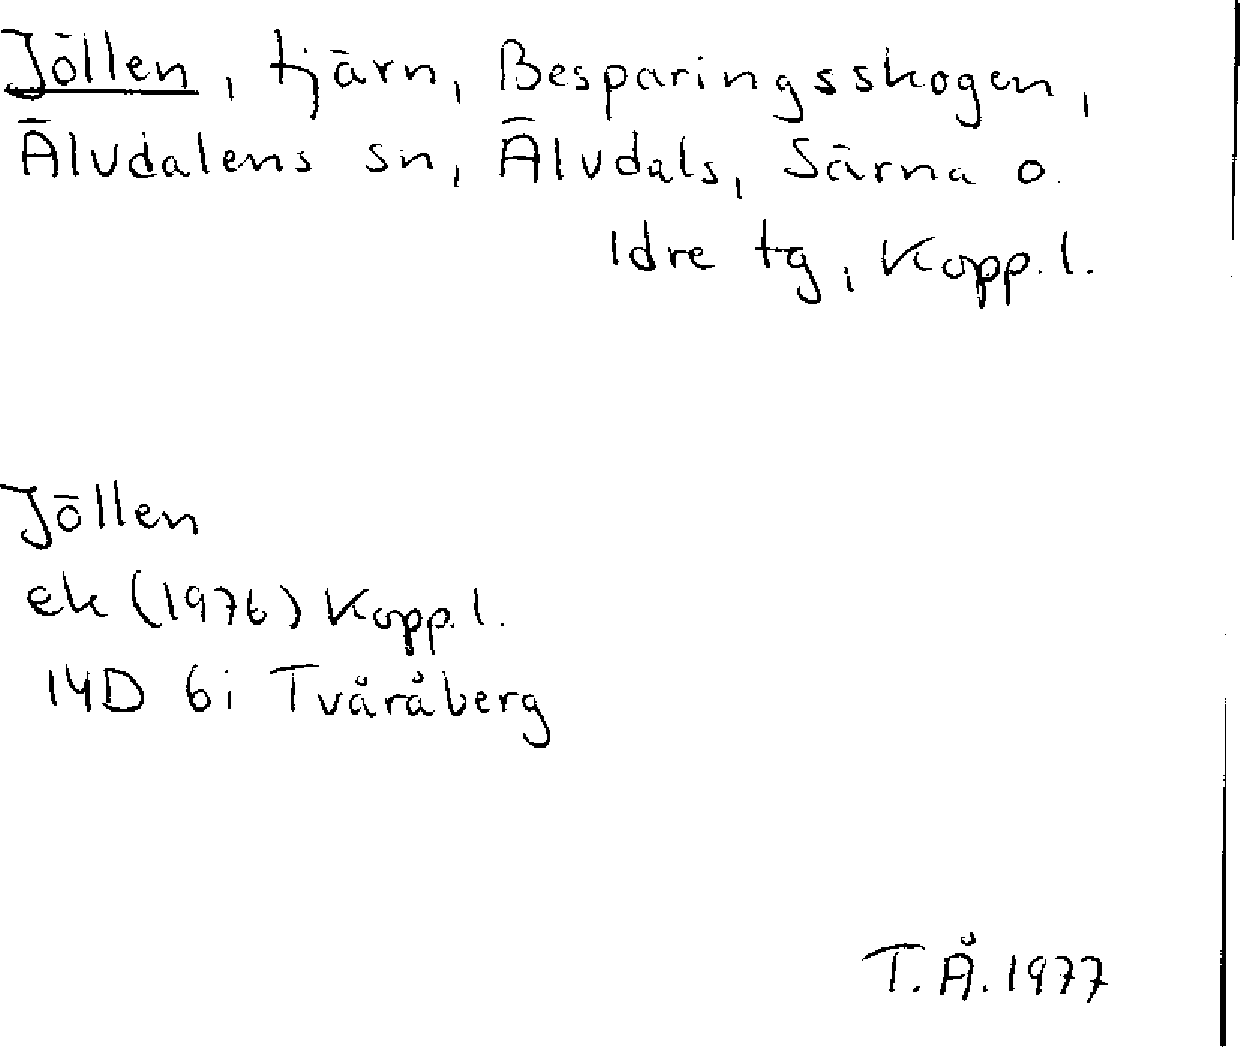 Jöllen, tjärn, Besparingsskogen,
Älvdalens sn, Älvdals, Särna o.
Idre tg, Kopp. l.
Jöllen
ek (1976) Kopp. l.
14D 6i Tvåråberg
T. Å. 1977